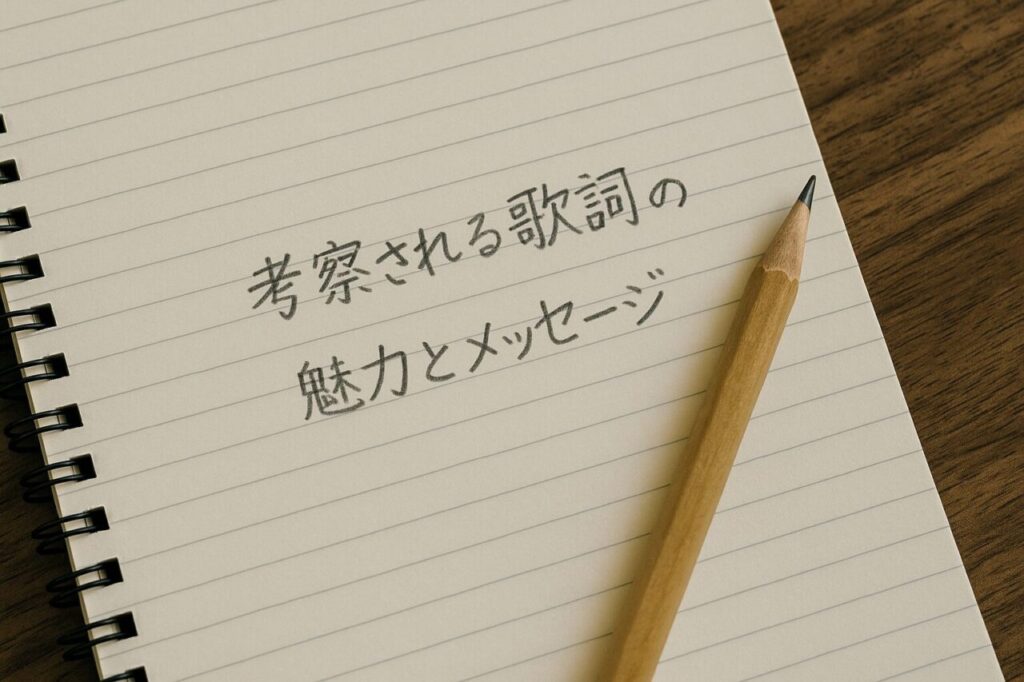 考察される歌詞の
魅力とメッセージ